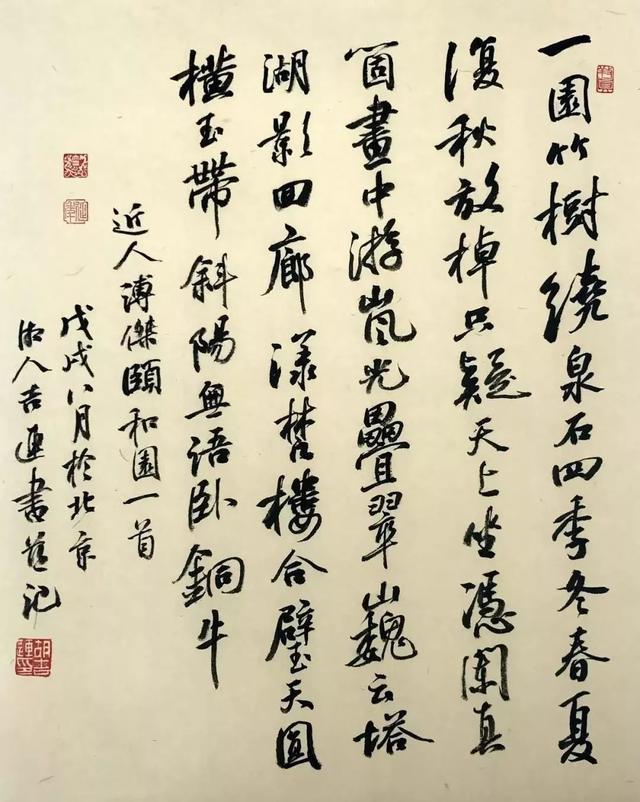 一園竹樹繞泉石四季冬春夏
復秋放棹只疑天上坐憑闌真
箇畫中游嵐光疊翠山巍云塔
湖影回廊漾梵樓合璧天圓
橫玉帶斜陽無語卧銅牛
近人溥傑頤和園一首
戊戌八月於北京
湘人吉連書記